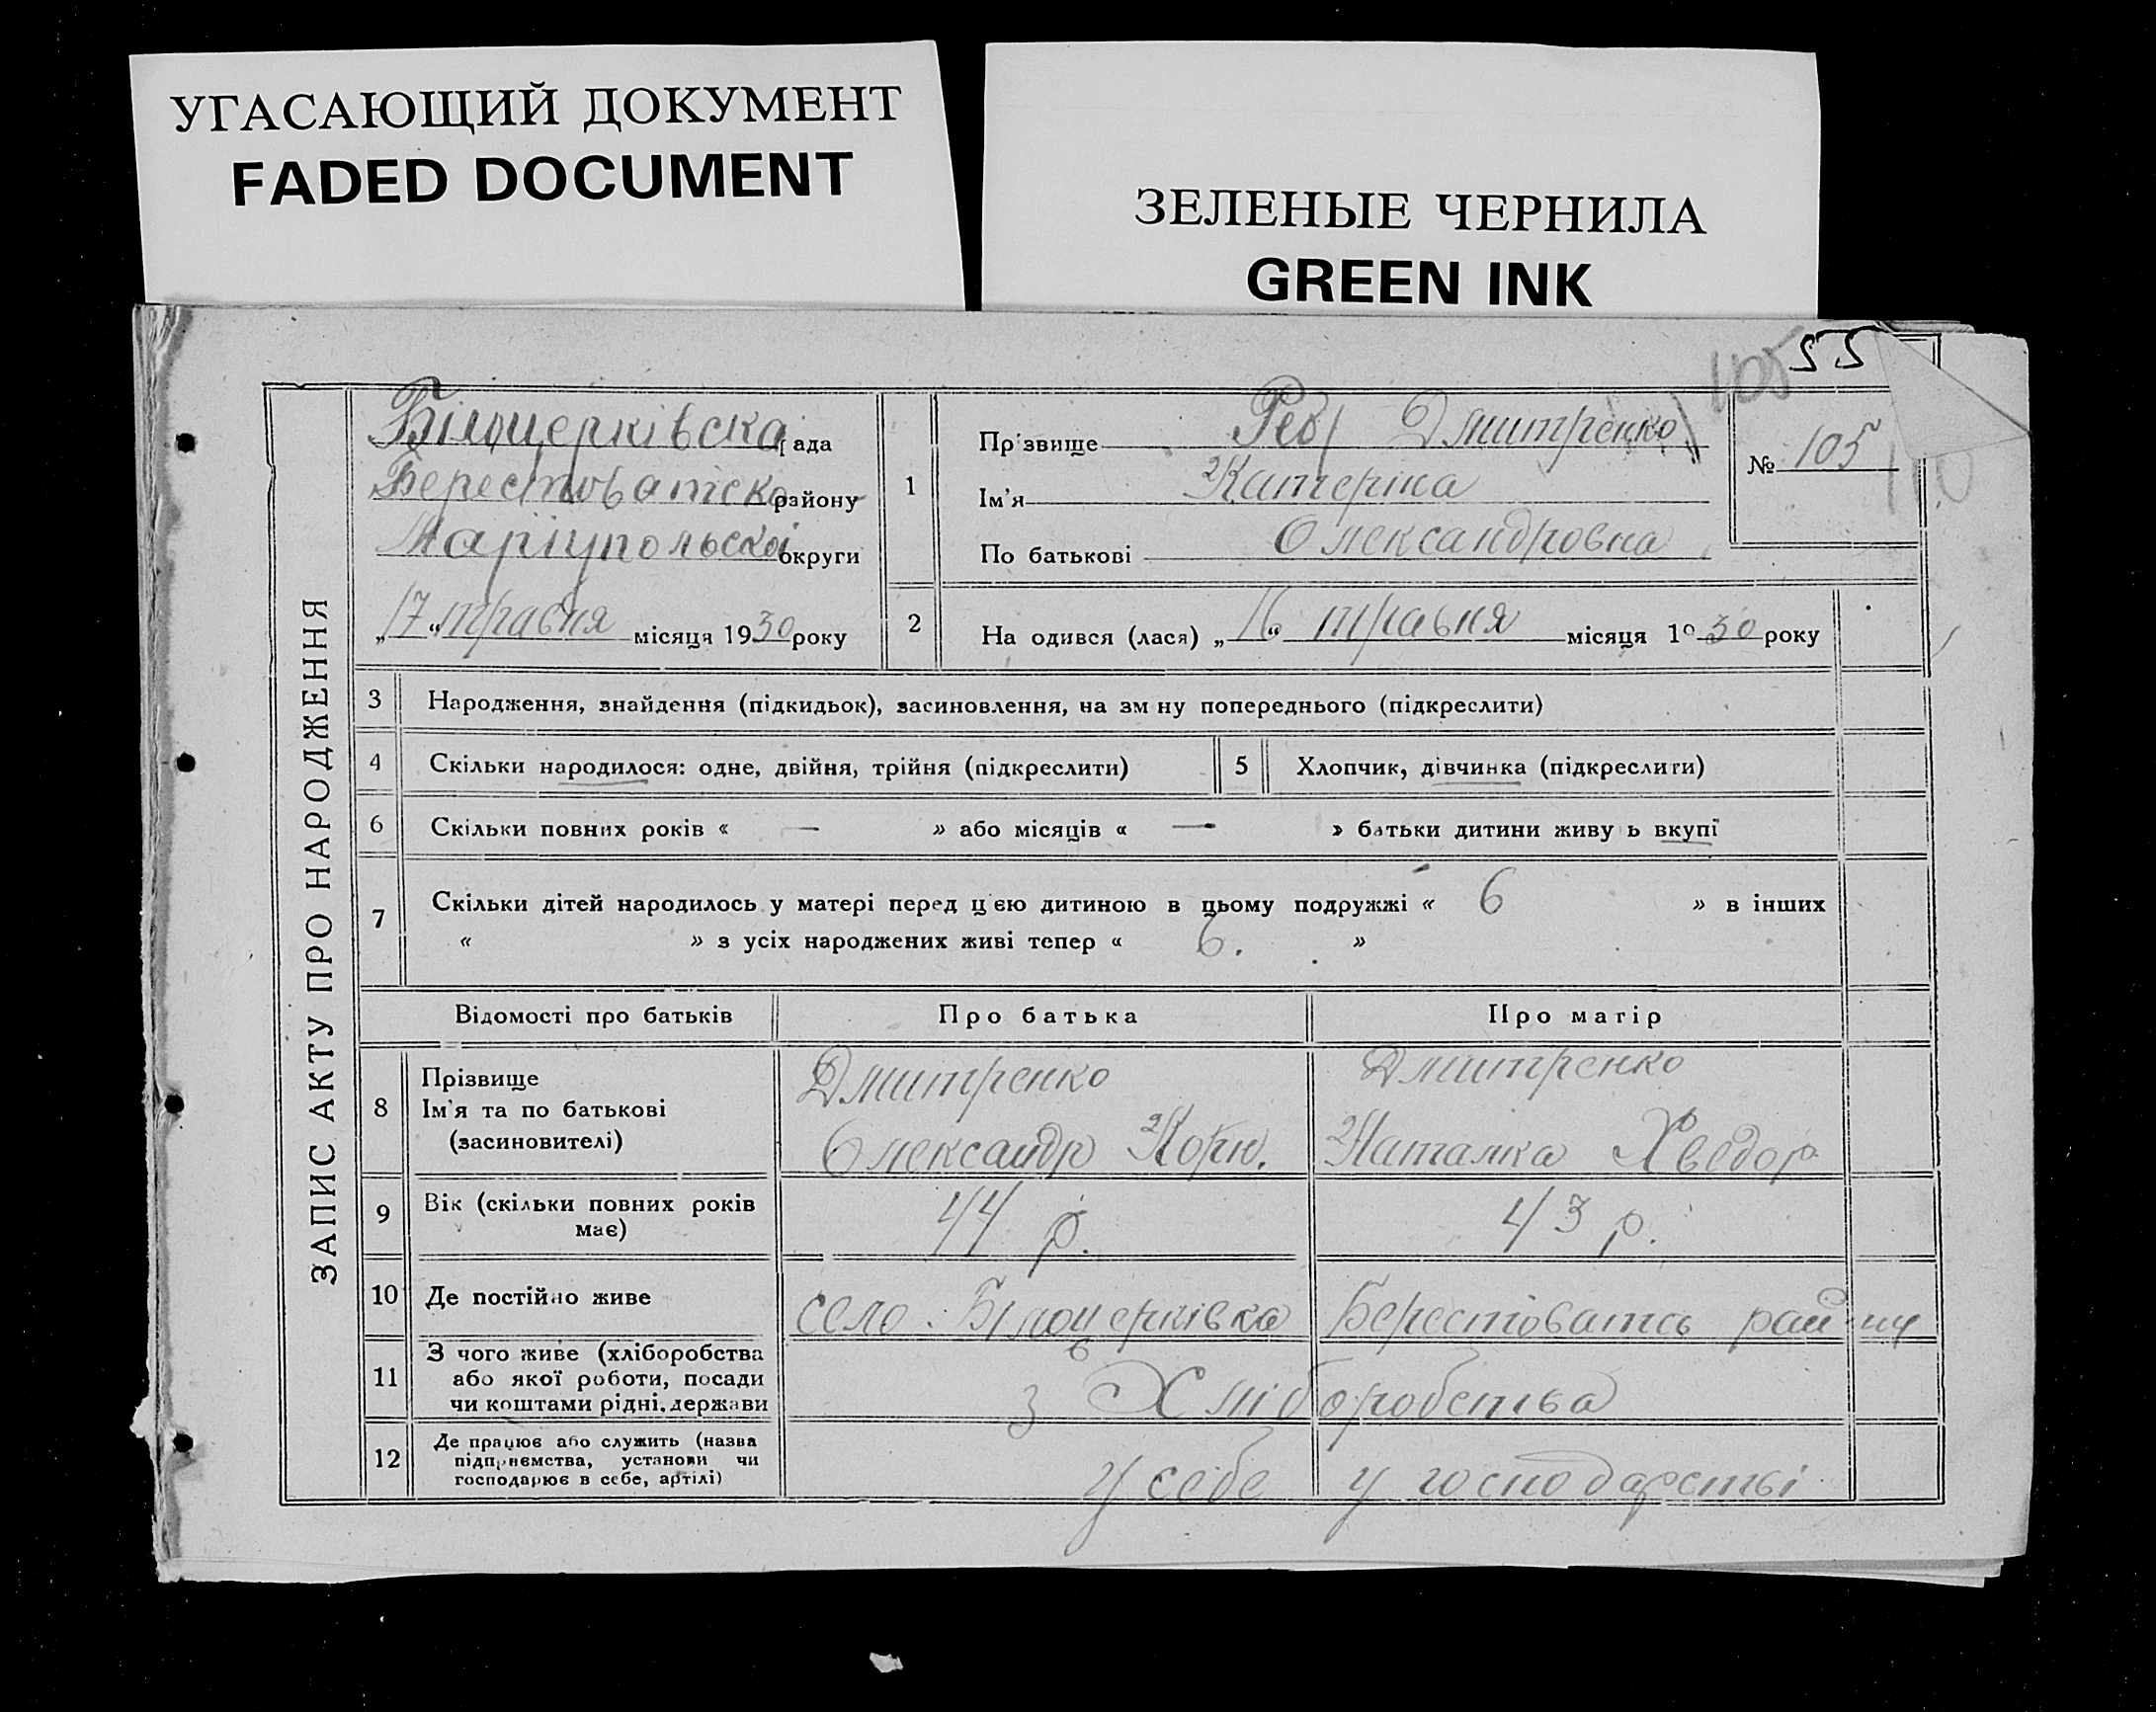 УГАСАЮЩИЙ ДОКУМЕНТ
FADED DOCUMENT
ЗЕЛЕНЫЕ ЧЕРНИЛА
GREEN INK
105 55
ЗАПИС АКТУ ПРО НАРОДЖЕННЯ
Білоцерківска рада
Берестоватско району
Маріупольскої округи
„17“ травня місяця 1930 року
1
Прізвище Дмитренко
Ім'я Катеріна
По батькові Олександровна
№ 105
110
2
На одився (лася) „16“ травня місяця 1930 року
3 Народження, знайдення (підкидьок), засиновлення, на зм ну попереднього (підкреслити)
4 Скільки народилося: одне, двійня, трійня (підкреслити)
5 Хлопчик, дівчинка (підкреслити)
6 Скільки повних років « — » або місяців « — » батьки дитини живу ь вкупі
7 Скільки дітей народилось у матері перед цією дитиною в цьому подружжі « 6 » в інших
« » з усіх народжених живі тепер « 6. »
Відомості про батьків Про батька Про матір
8 Прізвище
Ім'я та по батькові
(засиновителі)
Дмитренко
Олександр Корн.
Дмитренко
Наталка Хведор
9 Вік (скільки повних років
має)
44 р. 43 р.
10 Де постійно живе село Білоцерківка Берестоватсь району
11 З чого живе (хліборобства
або якої роботи, посади
чи коштами рідні, держави
з Хліборобства
12 Де працює або служить (назва
підприємства, установи чи
господарює в себе, артілі)
У себе у господарстві